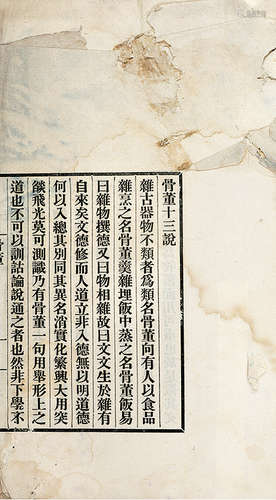 骨董十三說
雜古器物不類者爲類名骨董向有人以食品
雜烹之名骨董羹雜埋飯中蒸之名骨董飯易
曰雜物撰德又曰物相雜故曰文文生於雜有
自來矣文德修而人道立非入德無以明道德
何以入總其別同其異名消實化繁興大用突
燄飛光莫可測識乃有骨董一句用舉形上之
道也不可以訓詁論說通之者也然非下學不
骨董